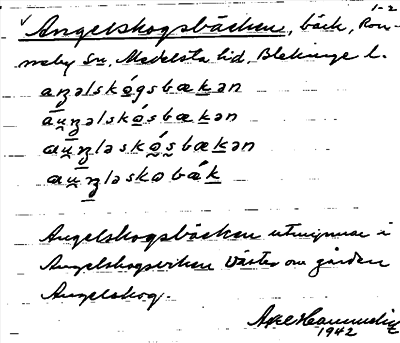 1-2
√ Angelskogsbäcken, bäck, Ron-
neby Sn, Medelsta hd, Blekinge l.
aŋəlskógsbækən
aṵŋəlskósbækən
aṵŋləskósbækən
aṵŋləskobæ´k
Angelskogsbäcken utmynnar i
Angelskogsviken väster om gården
Angelskog.
Axel Hannerdin
1942